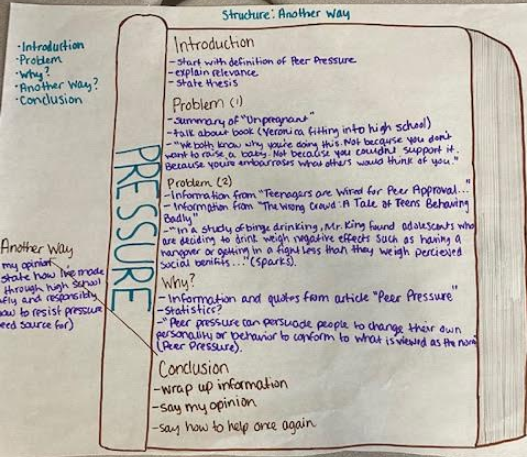 Structure: Another Way
·Introduction
·Problem
·Why?
·Another Way?
·Conclusion
PRESSURE
Introduction
-start with definition of Peer Pressure
-explain relevance
-state thesis
Problem (1)
-summary of "Unpregnant"
-talk about book (Veronica fitting into high school)
-"We both know why you're doing this. Not because you don't
want to raise a baby. Not because you couldn't support it.
Because you're embarrassed what others would think of you."
Problem (2)
-Information from "Teenagers are Wired for Peer Approval..."
-Information from "The Wrong Crowd: A Tale of Teens Behaving
Badly"
-"In a study of binge drinking, Mr. King found adolescents who
are deciding to drink weigh negative effects such as having a
hangover or getting in a fight less than they weigh percieved
social benefits..." (Sparks).
Why?
-Information and quotes from article "Peer Pressure"
-Statistics?
-"Peer pressure can persuade people to change their own
personality or behavior to conform to what is viewed as the norm"
(Peer Pressure).
Another Way
my opinion
state how I've made
through high school
and responsibly
how to resist pressure
source for)
Conclusion
-wrap up information
-say my opinion
-say how to help once again